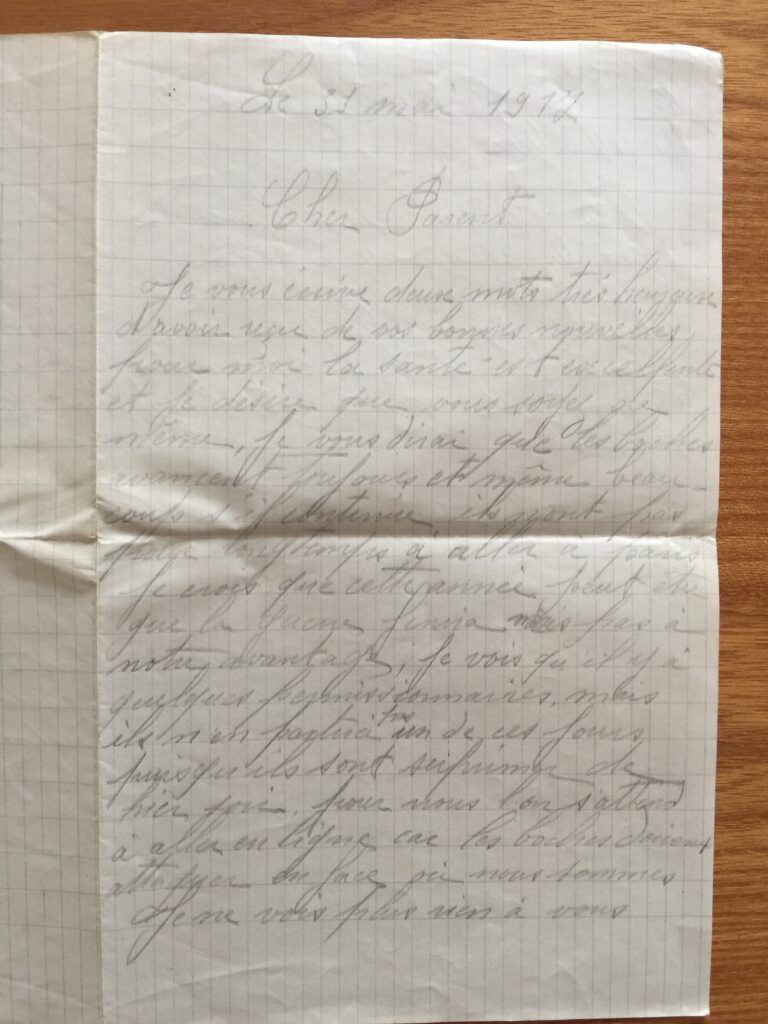 Le 31 mai 1917
Cher Parent
Je vous écrive deux mots très heureux
d'avoir reçu de vos bonnes nouvelles
pour moi la santé est excellente
et je désire que vous soyez de
même, Je vous dirai que les boches
avancent toujours et même beau
coup s'il continue ils n'ont pas
pour longtemps à aller à paris
Je crois que cette année peut être
que la guerre finira mais pas à
notre avantage, Je vois qu'il y à
quelques permissionnaires, mais
ils n'en un de ces jours
puisqu'ils sont de
hier soir, pour nous l'on s'attend
à aller en ligne car les boches doivent
attaquer en face où nous sommes
Je ne vois plus rien à vous